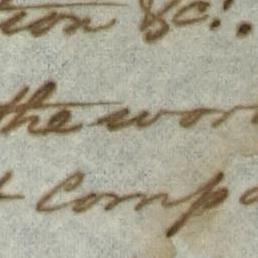 tion &c.
the wor
t comp